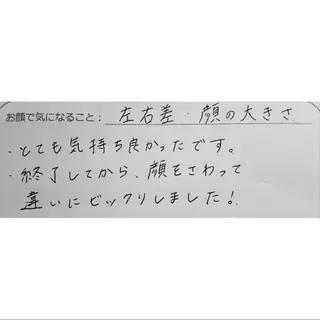 お顔で気になること: 左右差・顔の大きさ
・とても気持ち良かったです。
・終了してから、顔をさわって
違いにビックリしました!